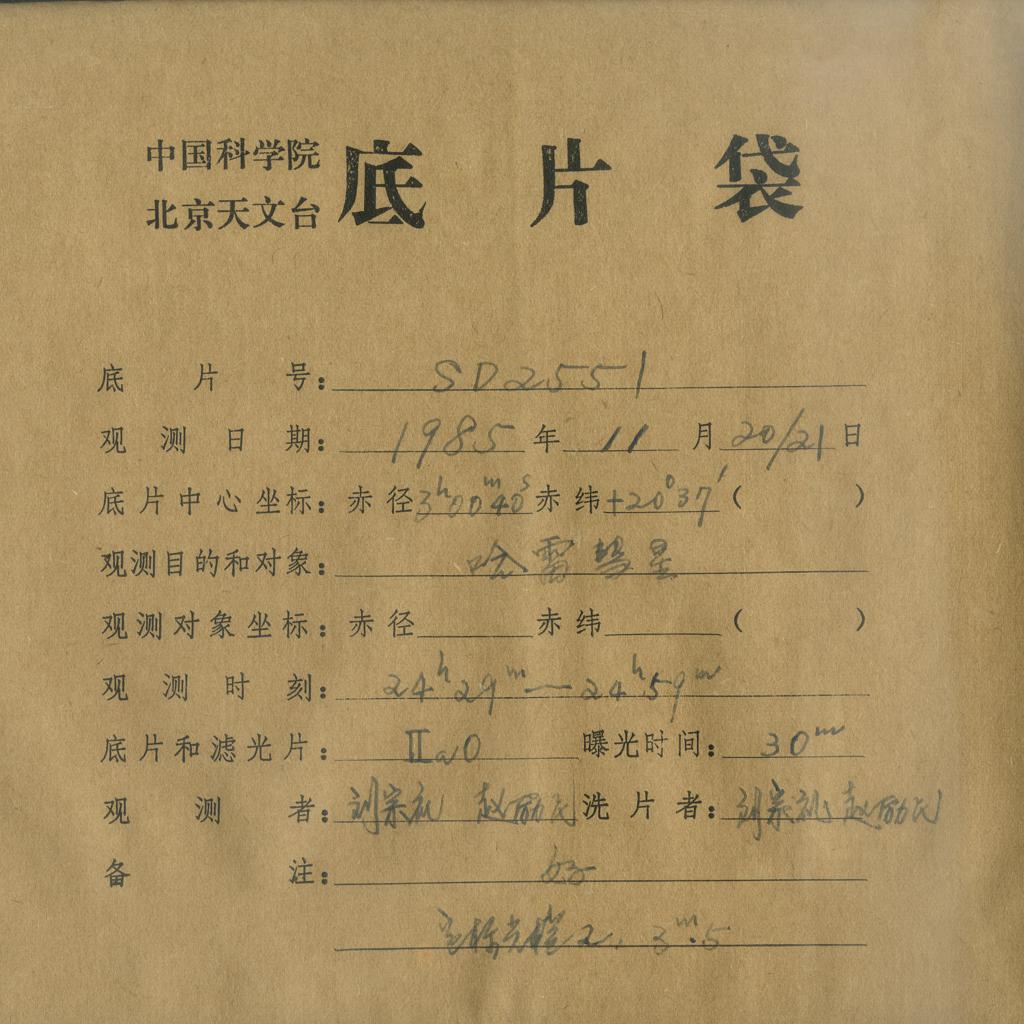 中国科学院
北京天文台
底片袋
底片号：SD2551
观测日期：1985年11月20/21日
底片中心坐标：赤径3h00m40s赤纬+20°37′（ ）
观测目的和对象：哈雷彗星
观测对象坐标：赤径 赤纬 （ ）
观测时刻：24h29m—24h59m
底片和滤光片：ⅡaO 曝光时间：30m
观测者：刘宗礼 赵励民 洗片者：刘宗礼 赵励民
备注：好
定标光楔2，3m.5